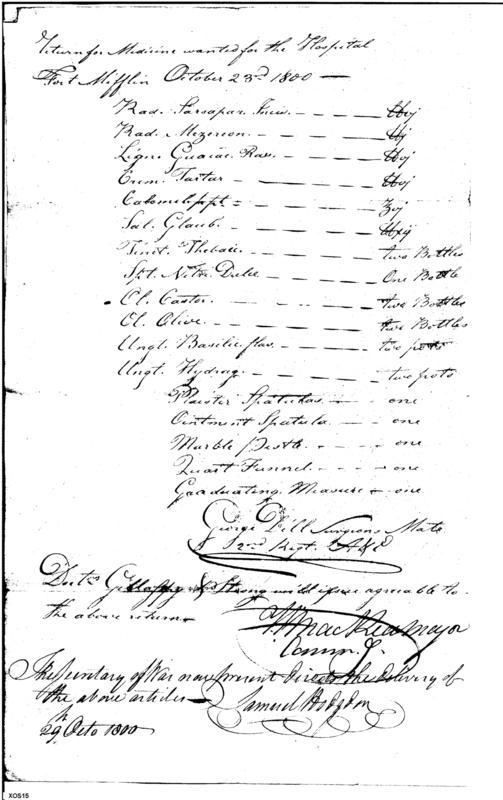 Return for Medicine wanted for the Hospital
Fort Mifflin October 23d 1800 —
Rad. Sarsapar. Inciv. — — — — ℔vj
Rad. Mezereon. — — — — ℔j
Lign. Guaiac. Ras. — — — — ℔vj
Crem. Tartar — — — — ℔vj
Calomel ppt — — — — ʒvj
Sal. Glaub. — — — —
Tinct. Thebaic. — — — — two Bottles
Spt. Nitr. Dulc. — — — — One Bottle
Ol. Castor. — — — — two Bottles
Ol. Olive. — — — — two Bottles
Ungt. Basilic. flav. — — — two pots
Ungt. Hydrag. — — — — two pots
Plaister Spatulas — — one
Ointment Spatula — — one
Marble Pestle. — — — one
Quart Funnel. — — — one
Graduating Measure — one
George Dill Surgeons Mate
2nd Regt. A & E
Doctr. Gillasspy & Strong will issue agreable to
the above return
Major
Comm. g.
The Secretary of War may present Directs the delivery of
the above articles —
Samuel Hodgdon
29 Octo 1800
XOS15